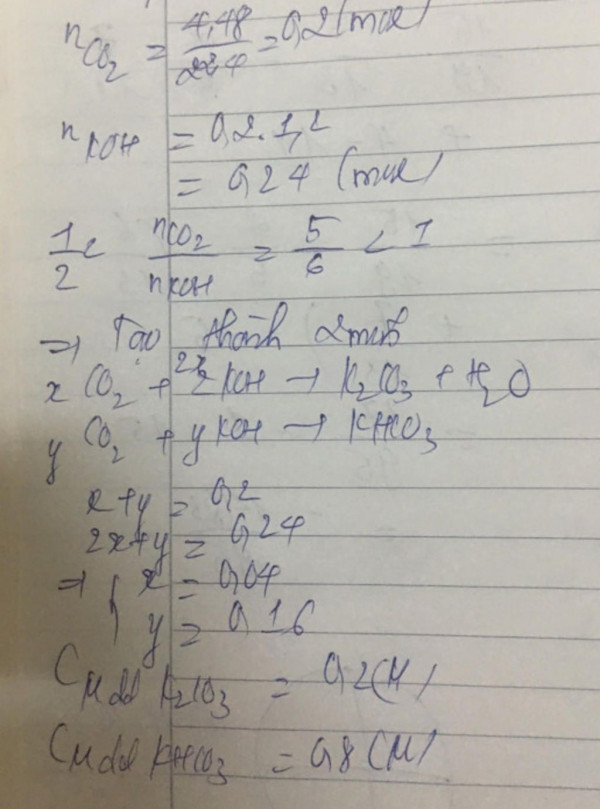 nCO₂ = 4,48/22,4 = 0,2 (mol)
nKOH = 0,2.1,2
= 0,24 (mol)
1/2 < nCO₂/nKOH = 5/6 < 1
=> Tạo thành 2 muối
x CO₂ + 2x KOH → K₂CO₃ + H₂O
y CO₂ + y KOH → KHCO₃
x+y = 0,2
2x+y = 0,24
=> { x = 0,04
y = 0,16
CM dd K₂CO₃ = 0,2(M)
CM dd KHCO₃ = 0,8(M)